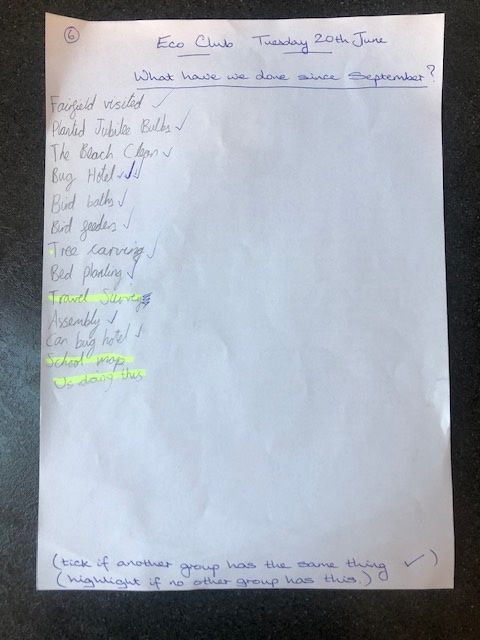 6
Eco Club Tuesday 20th June
What have we done since September?
Fairfield visited ✓
Planted Jubilee Bulbs ✓
The Beach Clean ✓
Bug Hotel ✓✓
Bird baths ✓
Bird feeders ✓
Tree carving ✓
Bed planting ✓
Travel Survey
Assembly ✓
Can bug hotel ✓
School map
Us doing this
(tick if another group has the same thing ✓)
(highlight if no other group has this.)